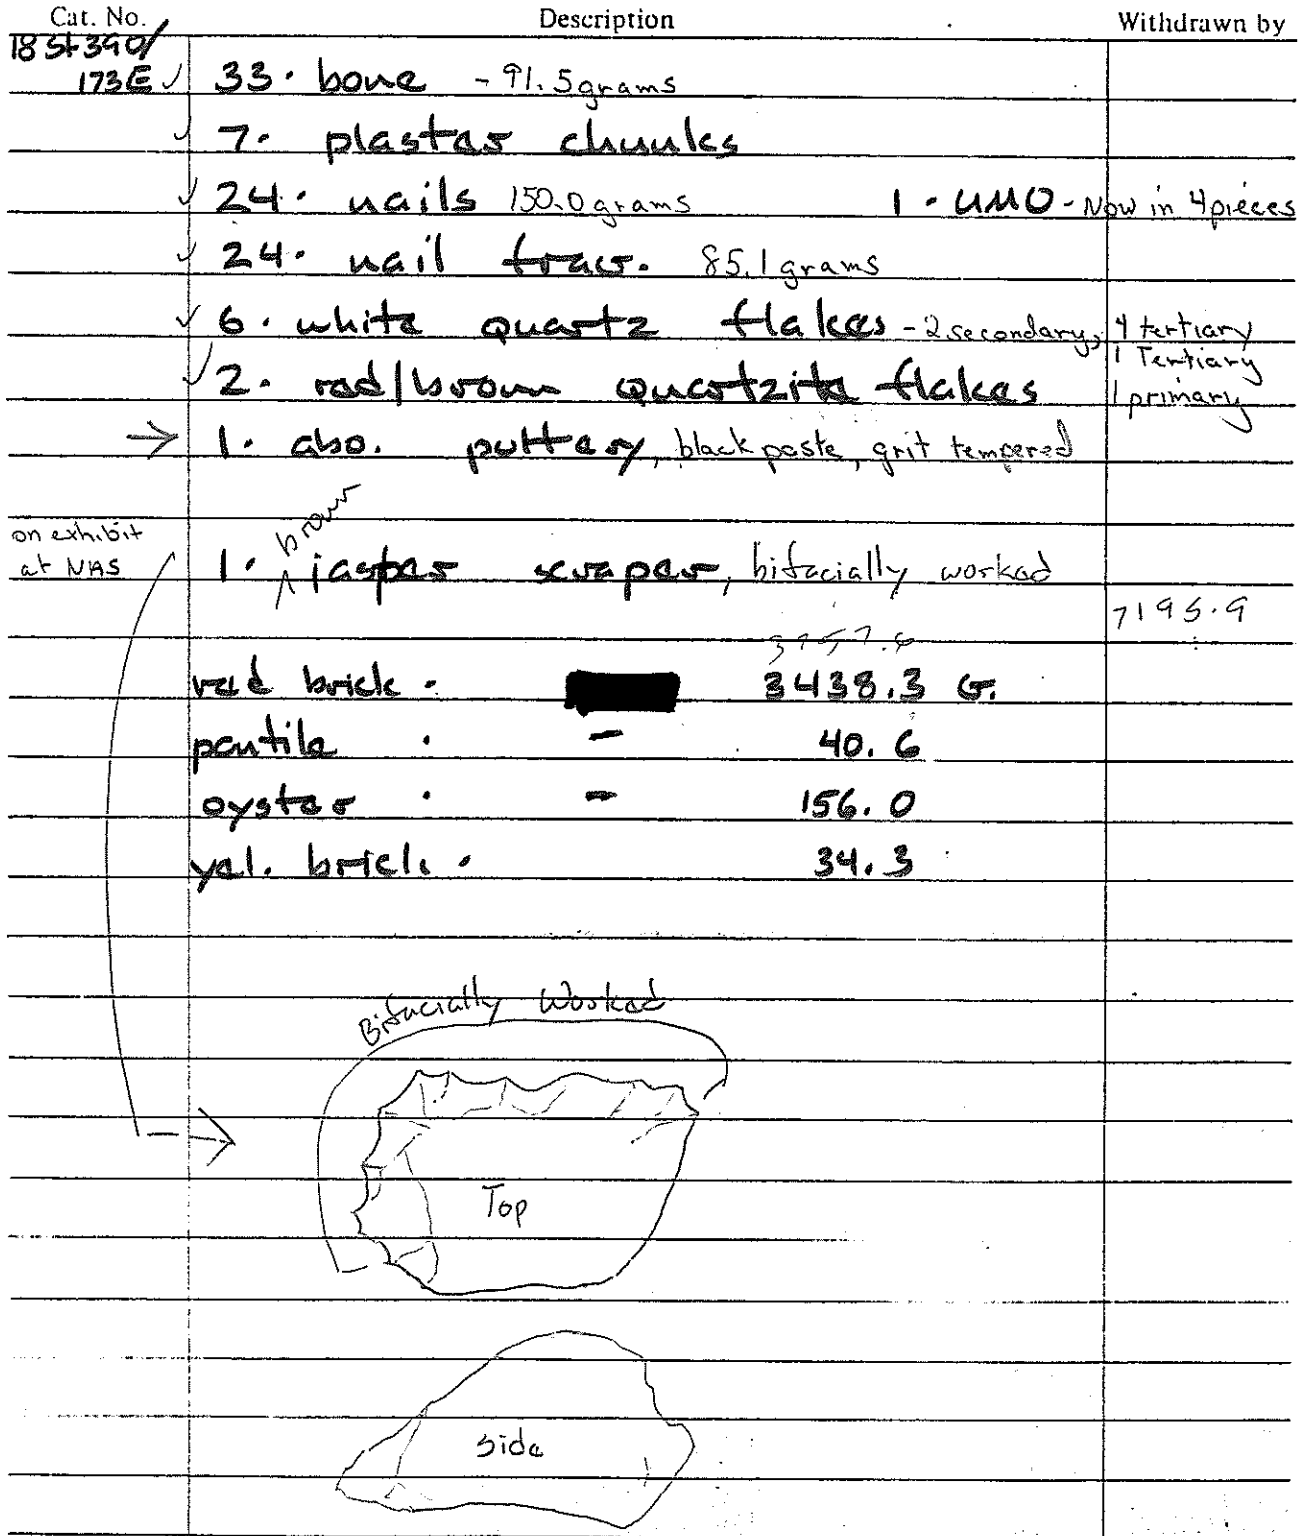 Cat. No. Description Withdrawn by
18 St 390/
173E ✓ 33. bone - 91.5 grams
✓ 7. plaster chunks
✓ 24. nails 150.0 grams 1. UMO - Now in 4 pieces
✓ 24. nail frag. 85.1 grams
✓ 6. white quartz flakes - 2 secondary, 4 tertiary
1 Tertiary
✓ 2. red/brown quartzite flakes 1 primary
→ 1. abo. pottery, black paste, grit tempered
on exhibit
at NAS
brown
1. ^ jasper scraper, bifacially worked
7195.9
red brick. 3438.3 G.
pantile . - 40.6
oyster . - 156.0
yel. brick. 34.3
Bifacially Worked
Top
side